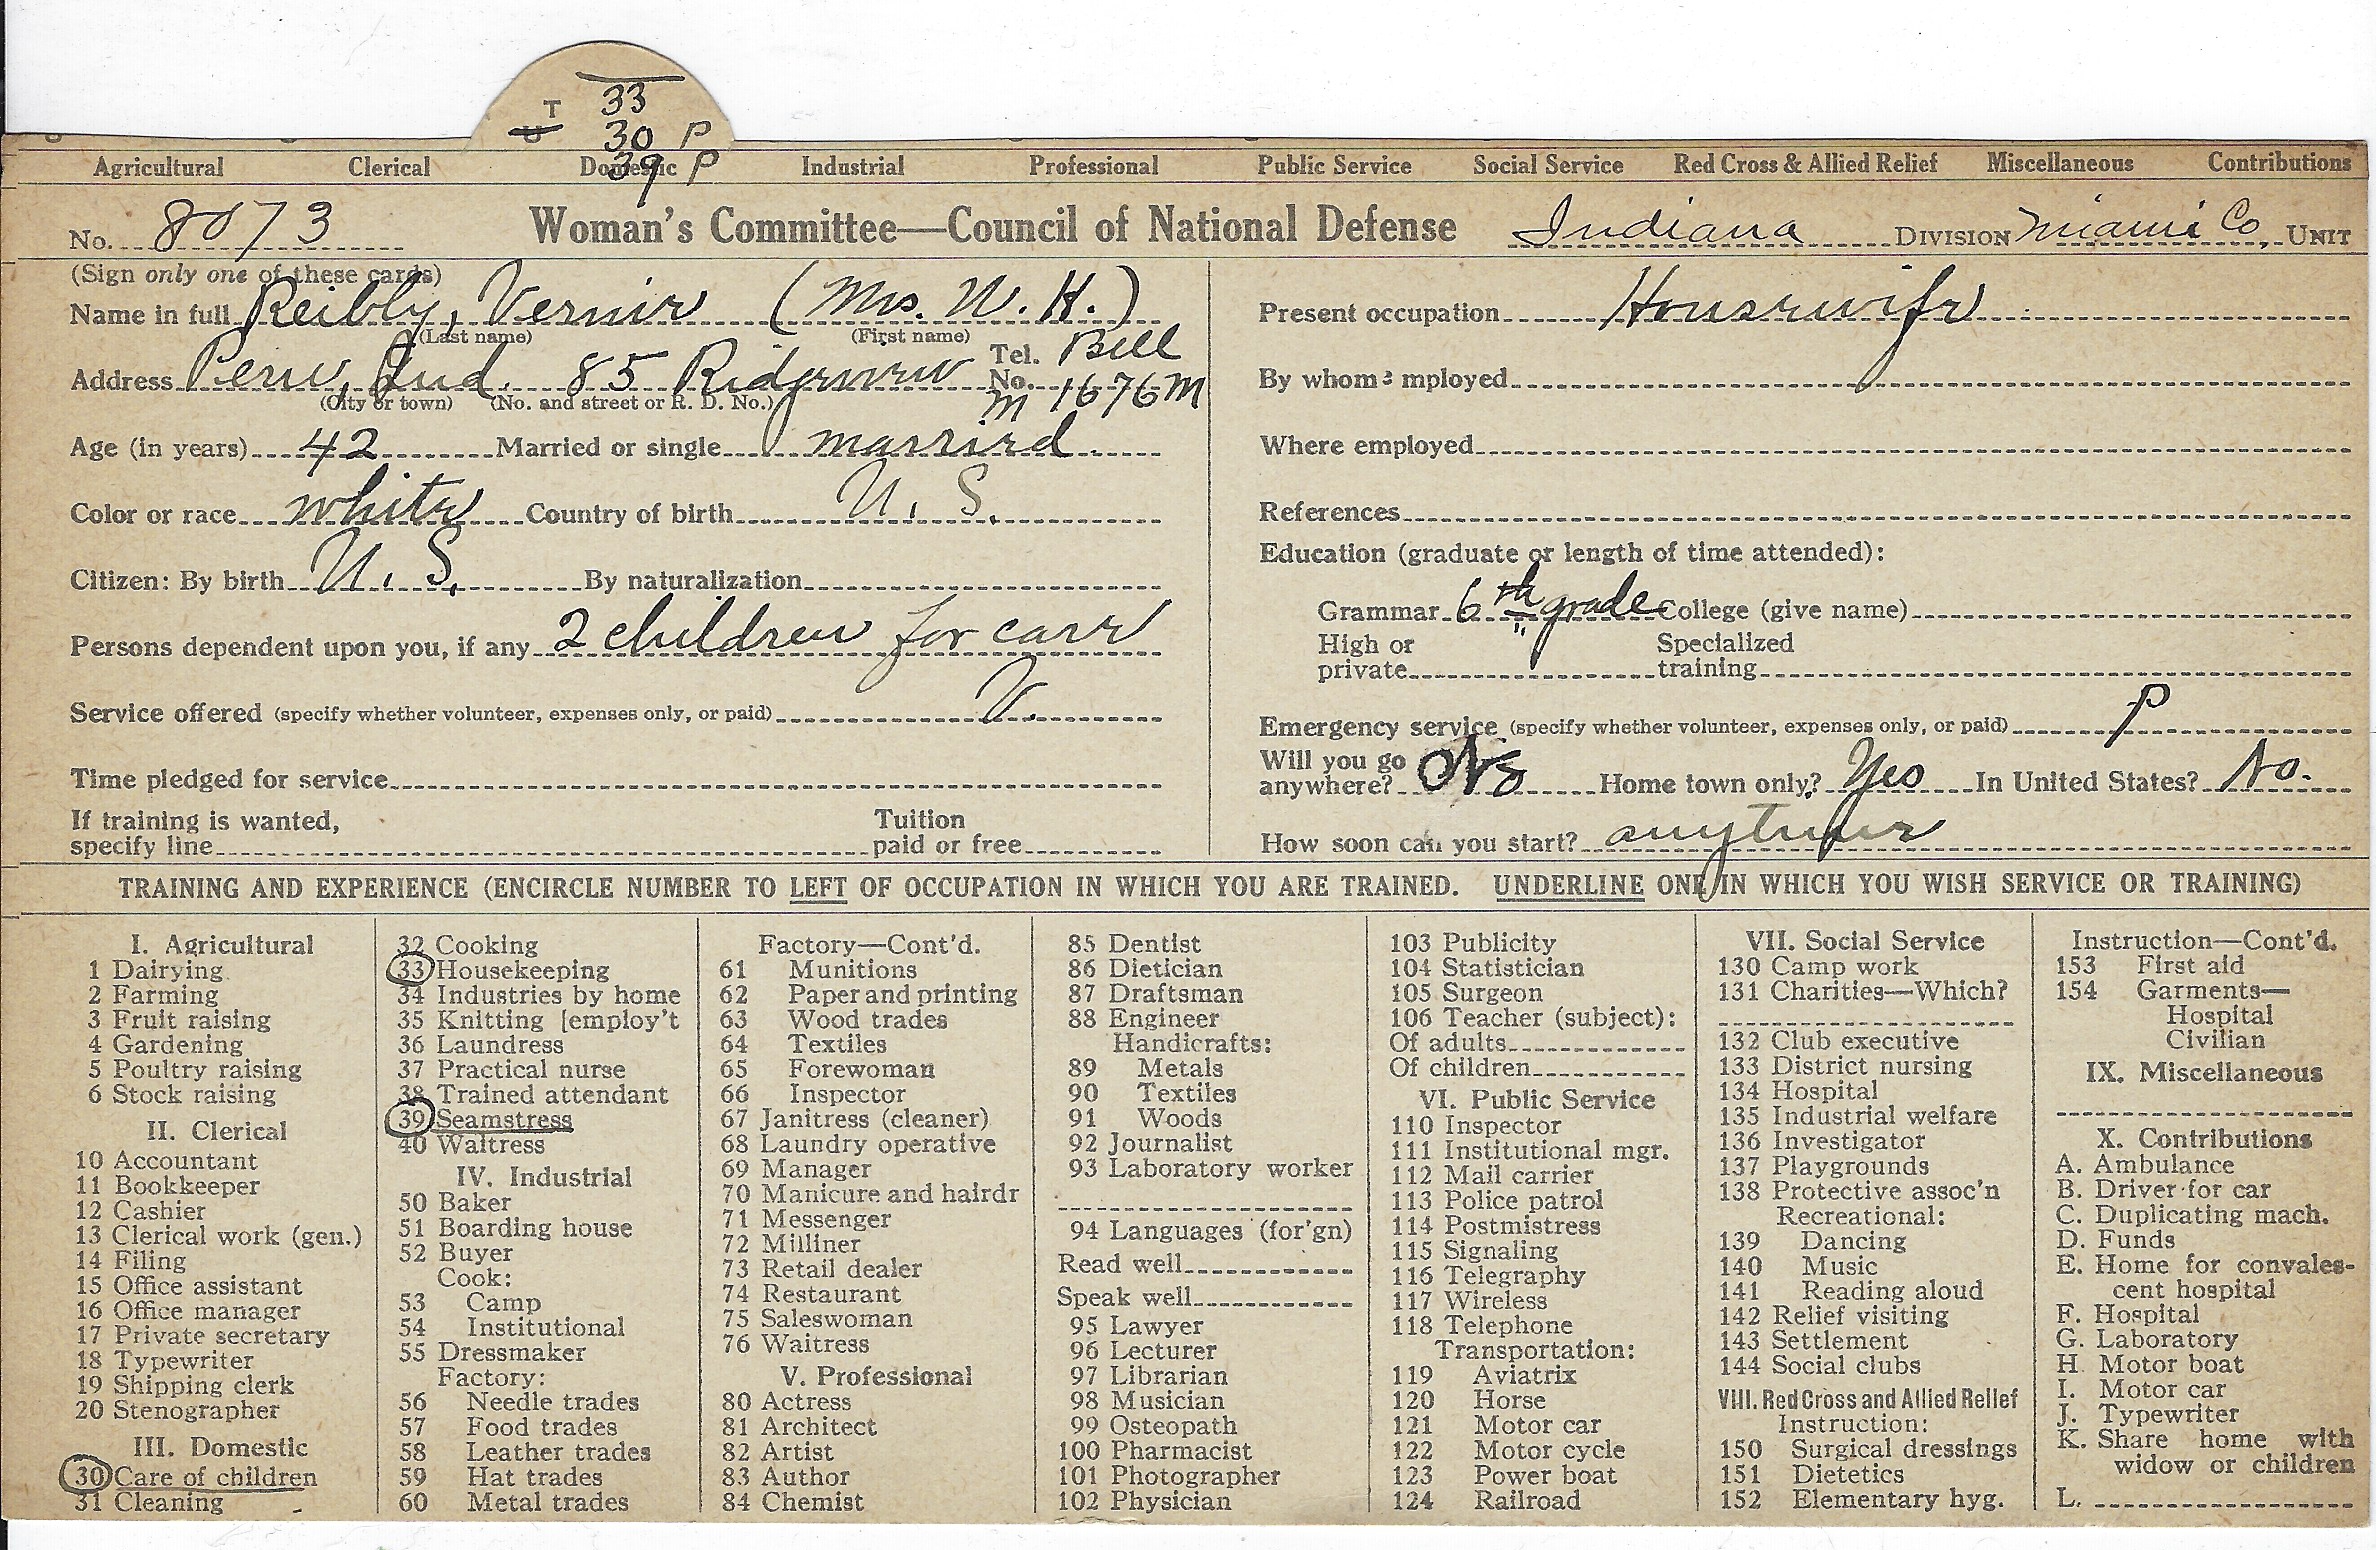 33
T
U 30 P
39 P
Agricultural Clerical Domestic Industrial Professional Public Service Social Service Red Cross & Allied Relief Miscellaneous Contributions
No. 8073 Woman's Committee—Council of National Defense Indiana DIVISION Miami Co, UNIT
(Sign only one of these cards)
Name in full Reibly, Vernie (Mrs. W. H.)
(Last name) (First name)
Address Peru, Ind. 85 Ridgeview Tel. No. Bell
m 1676 M
(City or town) (No. and street or R. D. No.)
Age (in years) 42 Married or single married
Color or race white Country of birth U. S.
Citizen: By birth U. S. By naturalization
Persons dependent upon you, if any 2 children for care
Service offered (specify whether volunteer, expenses only, or paid) V.
Time pledged for service
If training is wanted, specify line Tuition paid or free
Present occupation Housewife
By whom employed
Where employed
References
Education (graduate or length of time attended):
Grammar 6th grade College (give name)
High or private Specialized training
Emergency service (specify whether volunteer, expenses only, or paid) P
Will you go anywhere? No Home town only? Yes In United States? No.
How soon can you start? anytime
TRAINING AND EXPERIENCE (ENCIRCLE NUMBER TO LEFT OF OCCUPATION IN WHICH YOU ARE TRAINED. UNDERLINE ONE IN WHICH YOU WISH SERVICE OR TRAINING)
I. Agricultural
1 Dairying
2 Farming
3 Fruit raising
4 Gardening
5 Poultry raising
6 Stock raising
II. Clerical
10 Accountant
11 Bookkeeper
12 Cashier
13 Clerical work (gen.)
14 Filing
15 Office assistant
16 Office manager
17 Private secretary
18 Typewriter
19 Shipping clerk
20 Stenographer
III. Domestic
30 Care of children
31 Cleaning
32 Cooking
33 Housekeeping
34 Industries by home
35 Knitting [employ't
36 Laundress
37 Practical nurse
38 Trained attendant
39 Seamstress
40 Waitress
IV. Industrial
50 Baker
51 Boarding house
52 Buyer
Cook:
53 Camp
54 Institutional
55 Dressmaker
Factory:
56 Needle trades
57 Food trades
58 Leather trades
59 Hat trades
60 Metal trades
Factory—Cont'd.
61 Munitions
62 Paper and printing
63 Wood trades
64 Textiles
65 Forewoman
66 Inspector
67 Janitress (cleaner)
68 Laundry operative
69 Manager
70 Manicure and hairdr
71 Messenger
72 Milliner
73 Retail dealer
74 Restaurant
75 Saleswoman
76 Waitress
V. Professional
80 Actress
81 Architect
82 Artist
83 Author
84 Chemist
85 Dentist
86 Dietician
87 Draftsman
88 Engineer
Handicrafts:
89 Metals
90 Textiles
91 Woods
92 Journalist
93 Laboratory worker
94 Languages (for'gn)
Read well
Speak well
95 Lawyer
96 Lecturer
97 Librarian
98 Musician
99 Osteopath
100 Pharmacist
101 Photographer
102 Physician
103 Publicity
104 Statistician
105 Surgeon
106 Teacher (subject):
Of adults
Of children
VI. Public Service
110 Inspector
111 Institutional mgr.
112 Mail carrier
113 Police patrol
114 Postmistress
115 Signaling
116 Telegraphy
117 Wireless
118 Telephone
Transportation:
119 Aviatrix
120 Horse
121 Motor car
122 Motor cycle
123 Power boat
124 Railroad
VII. Social Service
130 Camp work
131 Charities—Which?
132 Club executive
133 District nursing
134 Hospital
135 Industrial welfare
136 Investigator
137 Playgrounds
138 Protective assoc'n
Recreational:
139 Dancing
140 Music
141 Reading aloud
142 Relief visiting
143 Settlement
144 Social clubs
VIII. Red Cross and Allied Relief
Instruction:
150 Surgical dressings
151 Dietetics
152 Elementary hyg.
Instruction—Cont'd.
153 First aid
154 Garments—
Hospital
Civilian
IX. Miscellaneous
X. Contributions
A. Ambulance
B. Driver for car
C. Duplicating mach.
D. Funds
E. Home for convales-
cent hospital
F. Hospital
G. Laboratory
H. Motor boat
I. Motor car
J. Typewriter
K. Share home with
widow or children
L.